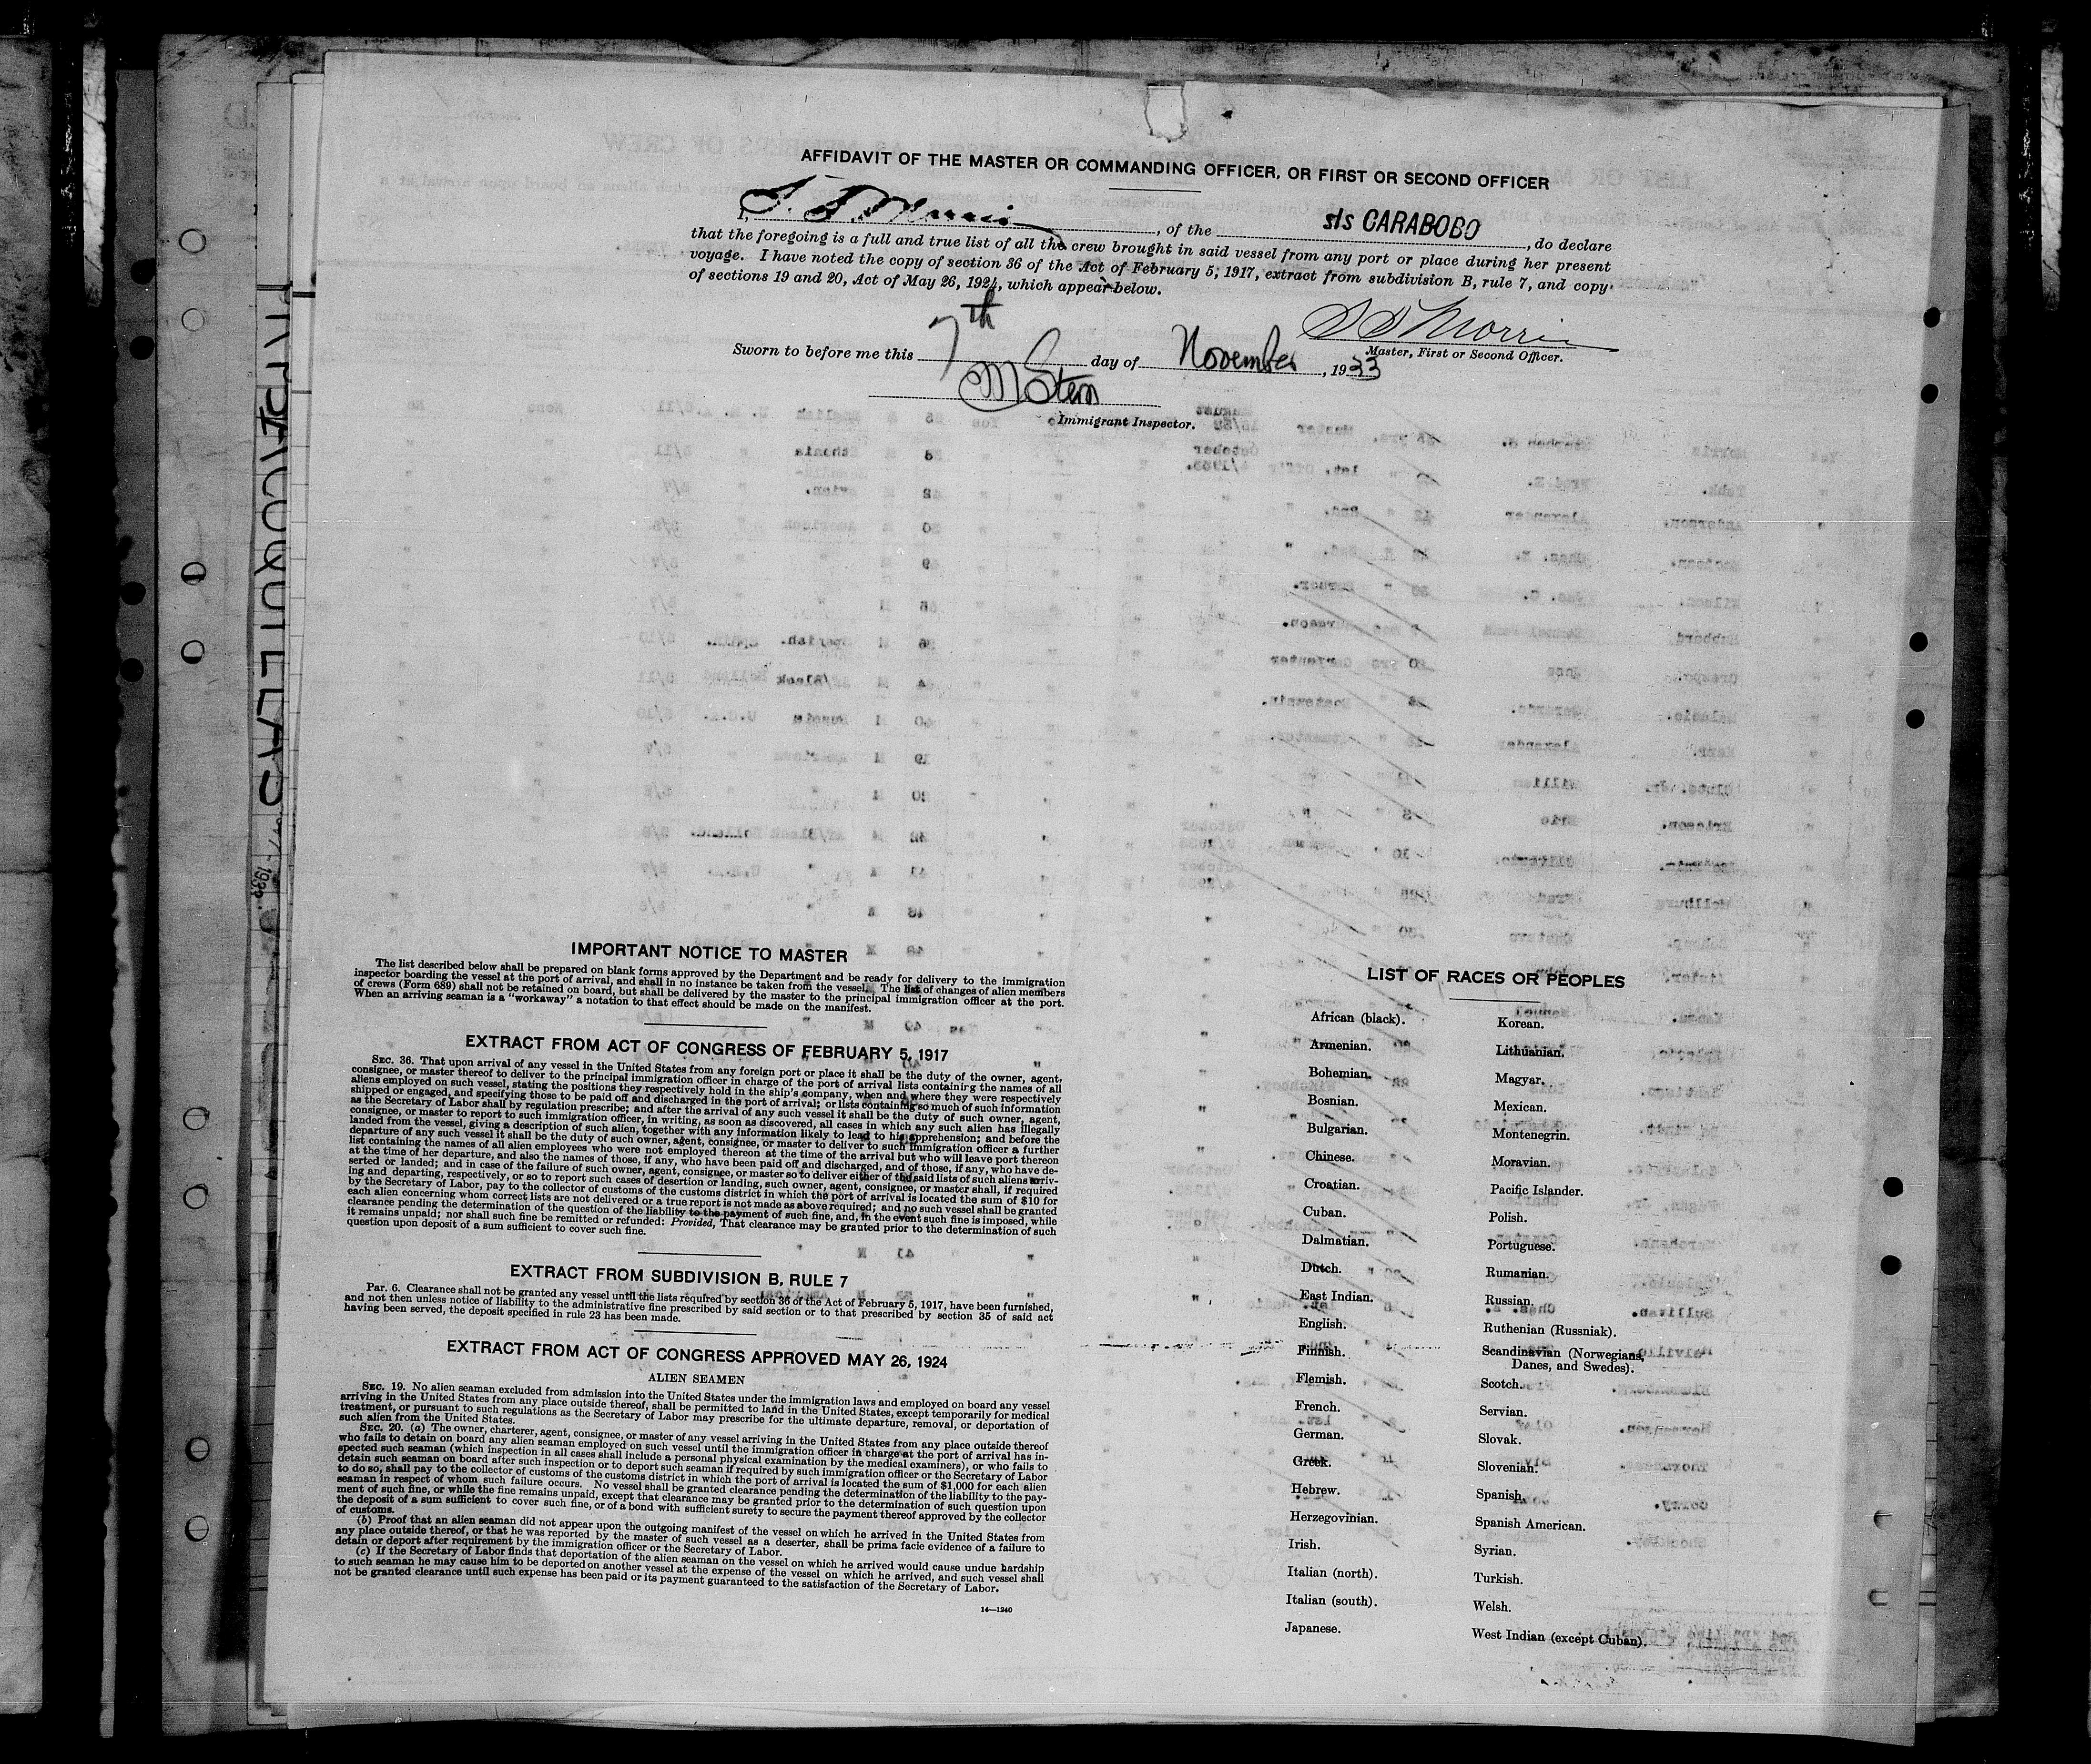 AFFIDAVIT OF THE MASTER OR COMMANDING OFFICER, OR FIRST OR SECOND OFFICER
I, , of the s/s CARABOBO , do declare
that the foregoing is a full and true list of all the crew brought in said vessel from any port or place during her present
voyage. I have noted the copy of section 36 of the Act of February 5, 1917, extract from subdivision B, rule 7, and copy
of sections 19 and 20, Act of May 26, 1924, which appear below.
S S Morris
Master, First or Second Officer.
Sworn to before me this 7th day of November , 1933
M Stern
Immigrant Inspector.
IMPORTANT NOTICE TO MASTER
The list described below shall be prepared on blank forms approved by the Department and be ready for delivery to the immigration
inspector boarding the vessel at the port of arrival, and shall in no instance be taken from the vessel. The list of changes of alien members
of crews (Form 689) shall not be retained on board, but shall be delivered by the master to the principal immigration officer at the port.
When an arriving seaman is a "workaway" a notation to that effect should be made on the manifest.
EXTRACT FROM ACT OF CONGRESS OF FEBRUARY 5, 1917
SEC. 36. That upon arrival of any vessel in the United States from any foreign port or place it shall be the duty of the owner, agent,
consignee, or master thereof to deliver to the principal immigration officer in charge of the port of arrival lists containing the names of all
aliens employed on such vessel, stating the positions they respectively hold in the ship's company, when and where they were respectively
shipped or engaged, and specifying those to be paid off and discharged in the port of arrival; or lists containing so much of such information
as the Secretary of Labor shall by regulation prescribe; and after the arrival of any such vessel it shall be the duty of such owner, agent,
consignee, or master to report to such immigration officer, in writing, as soon as discovered, all cases in which any such alien has illegally
landed from the vessel, giving a description of such alien, together with any information likely to lead to his apprehension; and before the
departure of any such vessel it shall be the duty of such owner, agent, consignee, or master to deliver to such immigration officer a further
list containing the names of all alien employees who were not employed thereon at the time of the arrival but who will leave port thereon
at the time of her departure, and also the names of those, if any, who have been paid off and discharged, and of those, if any, who have de-
serted or landed; and in case of the failure of such owner, agent, consignee, or master so to deliver either of the said lists of such aliens arriv-
ing and departing, respectively, or so to report such cases of desertion or landing, such owner, agent, consignee, or master shall, if required
by the Secretary of Labor, pay to the collector of customs of the customs district in which the port of arrival is located the sum of $10 for
each alien concerning whom correct lists are not delivered or a true report is not made as above required; and no such vessel shall be granted
clearance pending the determination of the question of the liability to the payment of such fine, and, in the event such fine is imposed, while
it remains unpaid; nor shall such fine be remitted or refunded: Provided, That clearance may be granted prior to the determination of such
question upon deposit of a sum sufficient to cover such fine.
EXTRACT FROM SUBDIVISION B, RULE 7
Par. 6. Clearance shall not be granted any vessel until the lists required by section 36 of the Act of February 5, 1917, have been furnished,
and not then unless notice of liability to the administrative fine prescribed by said section or to that prescribed by section 35 of said act
having been served, the deposit specified in rule 23 has been made.
EXTRACT FROM ACT OF CONGRESS APPROVED MAY 26, 1924
ALIEN SEAMEN
SEC. 19. No alien seaman excluded from admission into the United States under the immigration laws and employed on board any vessel
arriving in the United States from any place outside thereof, shall be permitted to land in the United States, except temporarily for medical
treatment, or pursuant to such regulations as the Secretary of Labor may prescribe for the ultimate departure, removal, or deportation of
such alien from the United States.
SEC. 20. (a) The owner, charterer, agent, consignee, or master of any vessel arriving in the United States from any place outside thereof
who fails to detain on board any alien seaman employed on such vessel until the immigration officer in charge at the port of arrival has in-
spected such seaman (which inspection in all cases shall include a personal physical examination by the medical examiners), or who fails to
detain such seaman on board after such inspection or to deport such seaman if required by such immigration officer or the Secretary of Labor
to do so, shall pay to the collector of customs of the customs district in which the port of arrival is located the sum of $1,000 for each alien
seaman in respect of whom such failure occurs. No vessel shall be granted clearance pending the determination of the liability to the pay-
ment of such fine, or while the fine remains unpaid, except that clearance may be granted prior to the determination of such question upon
the deposit of a sum sufficient to cover such fine, or of a bond with sufficient surety to secure the payment thereof approved by the collector
of customs.
(b) Proof that an alien seaman did not appear upon the outgoing manifest of the vessel on which he arrived in the United States from
any place outside thereof, or that he was reported by the master of such vessel as a deserter, shall be prima facie evidence of a failure to
detain or deport after requirement by the immigration officer or the Secretary of Labor.
(c) If the Secretary of Labor finds that deportation of the alien seaman on the vessel on which he arrived would cause undue hardship
to such seaman he may cause him to be deported on another vessel at the expense of the vessel on which he arrived, and such vessel shall
not be granted clearance until such expense has been paid or its payment guaranteed to the satisfaction of the Secretary of Labor.
14—1240
LIST OF RACES OR PEOPLES
African (black).
Armenian.
Bohemian.
Bosnian.
Bulgarian.
Chinese.
Croatian.
Cuban.
Dalmatian.
Dutch.
East Indian.
English.
Finnish.
Flemish.
French.
German.
Greek.
Hebrew.
Herzegovinian.
Irish.
Italian (north).
Italian (south).
Japanese.
Korean.
Lithuanian.
Magyar.
Mexican.
Montenegrin.
Moravian.
Pacific Islander.
Polish.
Portuguese.
Rumanian.
Russian.
Ruthenian (Russniak).
Scandinavian (Norwegians,
Danes, and Swedes).
Scotch.
Servian.
Slovak.
Slovenian.
Spanish.
Spanish American.
Syrian.
Turkish.
Welsh.
West Indian (except Cuban).